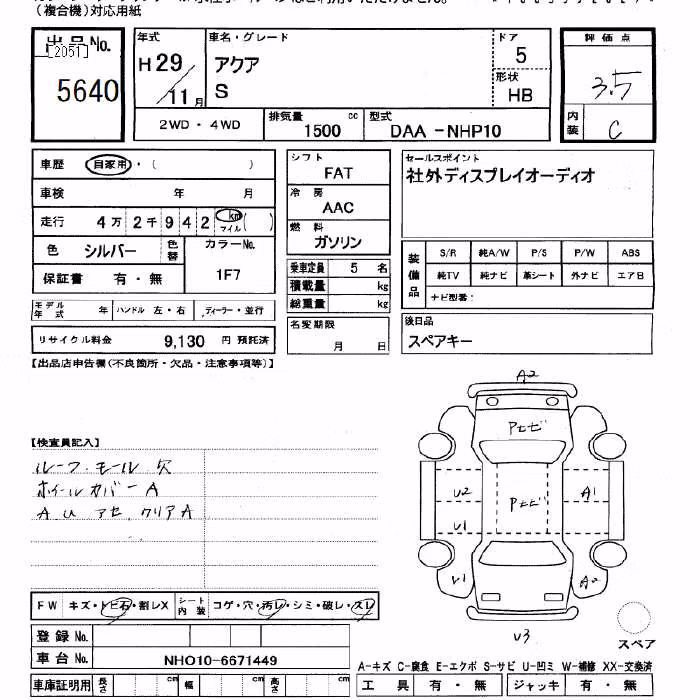 （複合機）対応用紙
出品No. [2051]
5640
年式 H29 / 11月
車名・グレード
アクア
S
ドア 5
形状 HB
評価点
3.5
内装 C
2WD・4WD
排気量 1500 cc
型式 DAA-NHP10
車歴 自家用・（ ）
車検 年 月
走行 4万2千942 km マイル ( )
色 シルバー 色替
カラーNo. 1F7
保証書 有・無
シフト FAT
冷房 AAC
燃料 ガソリン
乗車定員 5 名
積載量 kg
総重量 kg
セールスポイント
社外ディスプレイオーディオ
装備品
S/R 純A/W P/S P/W ABS
純TV 純ナビ 革シート 外ナビ エアB
ナビ型番：
モデル年式 年 ハンドル 左・右 ディーラー・並行
リサイクル料金 9,130 円 預託済
名変期限 月 日
後日品
スペアキー
【出品店申告欄(不良箇所・欠品・注意事項等)】
【検査員記入】
ルーフ モール 欠
ホイールカバーA
A U アセ、クリアA
A2
Pエビ
U2
Pエビ
A1
U1
U1
A2
U3
スペア
FW キズ・トビ石・割レX シート内装 コゲ・穴・汚レ・シミ・破レ・スレ
登録No.
車台No. NHO10-6671449
車庫証明用 長さ cm 幅 cm 高さ cm
A-キズ C-腐食 E-エクボ S-サビ U-凹ミ W-補修 XX-交換済
工具 有・無 ジャッキ 有・無